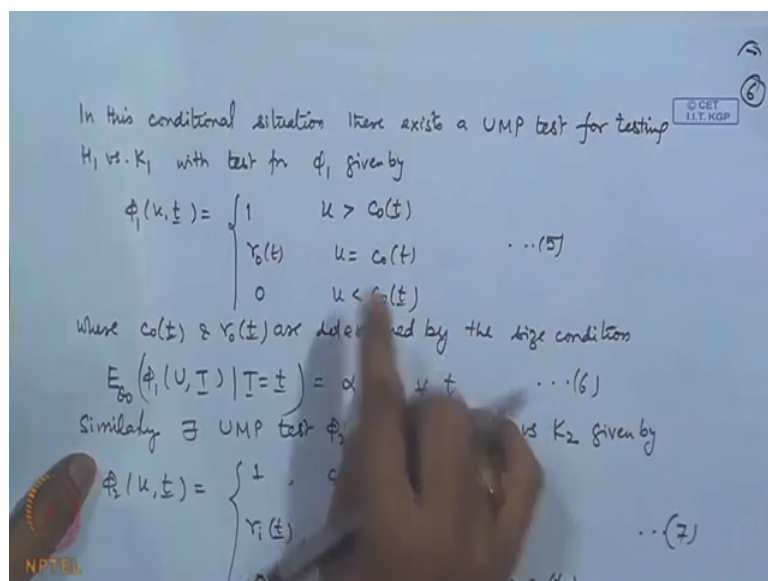 6
© CET
I.I.T. KGP
In this conditional situation there exists a UMP test for testing
H₁ vs. K₁ with test fn φ₁ given by
φ₁(u, t) = { 1 u > c₀(t)
γ₀(t) u = c₀(t) ...(5)
0 u < c₀(t)
where c₀(t) & γ₀(t) are determined by the size condition
E_θ₀(φ₁(U, T) | T = t) = α ∀ t ...(6)
Similarly ∃ UMP test φ₂ vs K₂ given by
φ₂(u, t) = { 1,
γᵢ(t) ...(7)
NPTEL